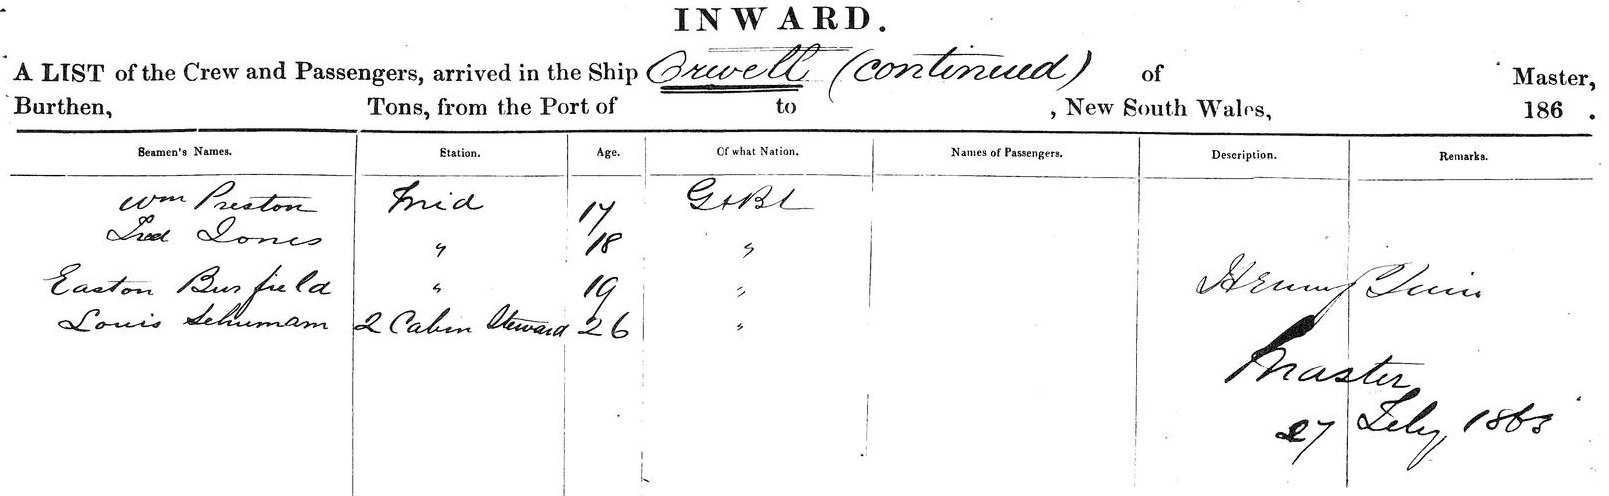 INWARD.
A LIST of the Crew and Passengers, arrived in the Ship Orwell (continued) of Master,
Burthen, Tons, from the Port of to , New South Wales, 186 .
Seamen's Names. Station. Age. Of what Nation. Names of Passengers. Description. Remarks.
Wm Preston Mid 17 Gt Bt
Fred Jones " 18 "
Easton Burfield " 19 "
Henry Quin
Louis Schumam 2 Cabin Steward 26 "
Master
27 Feby 1863